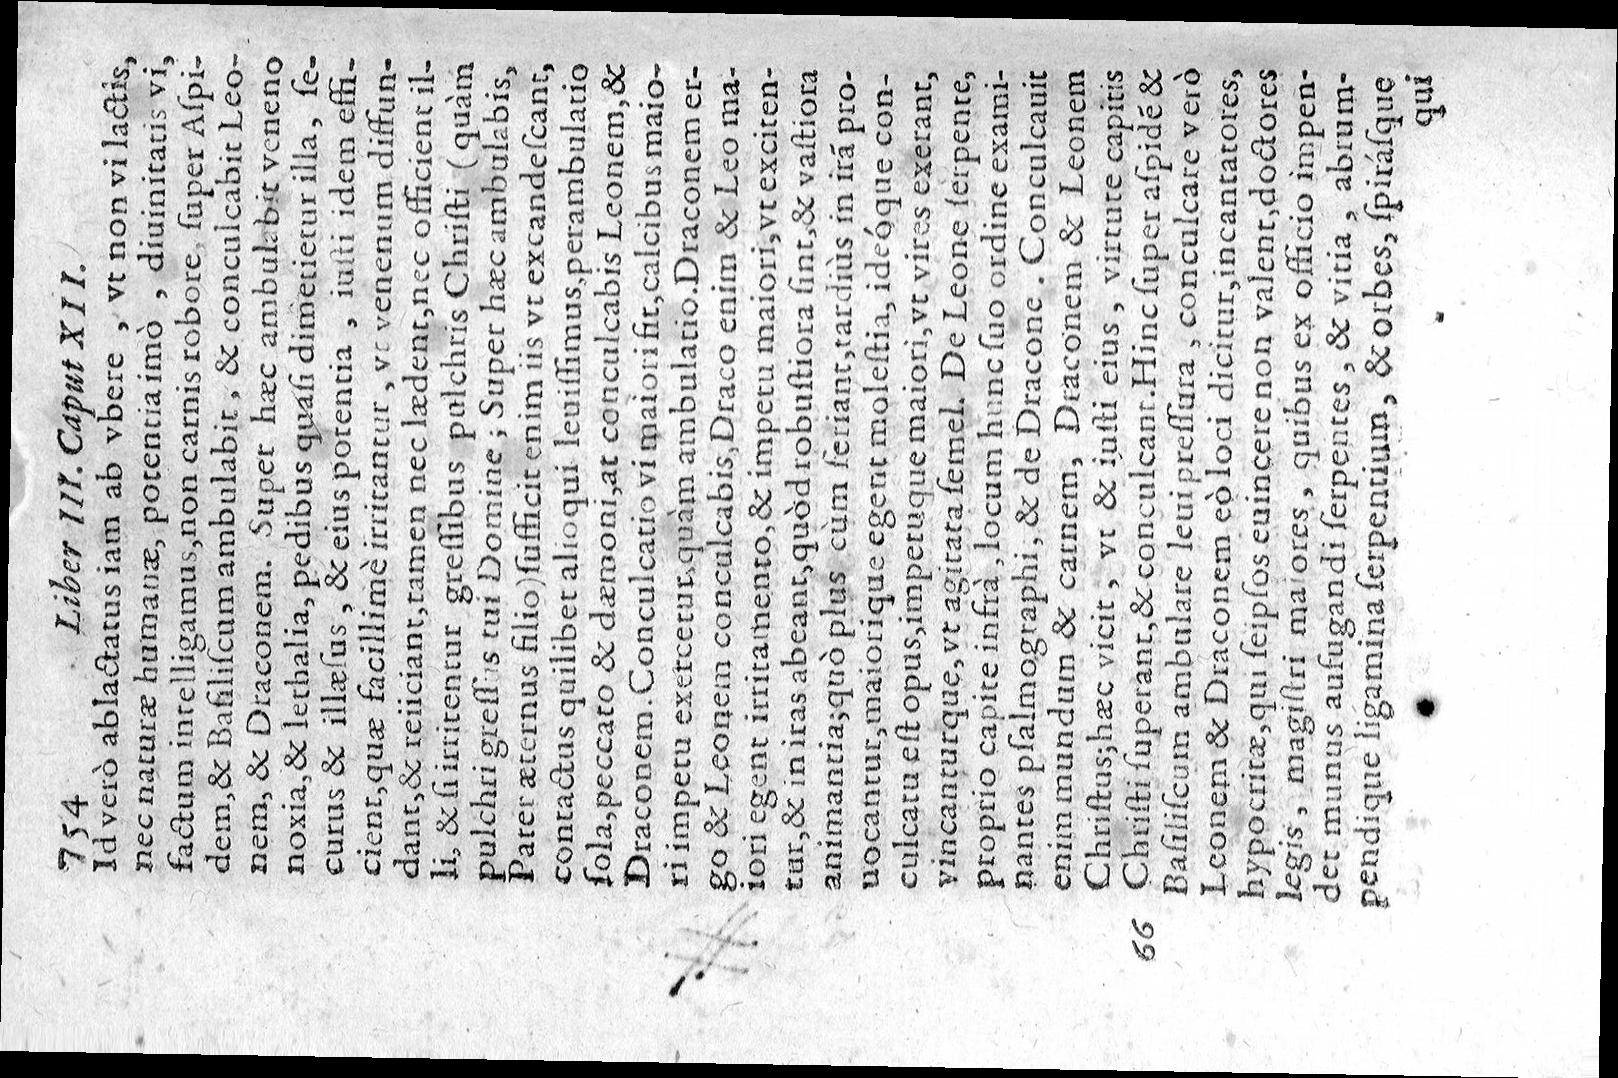 754 Liber III. Caput XII.
Id verò ablactatus iam ab vbere, vt non vi lactis,
nec naturæ humanæ, potentia imò, diuinitatis vi,
factum intelligamus, non carnis robore, ſuper Aſpi-
dem, & Baſiliſcum ambulabit, & conculcabit Leo-
nem, & Draconem. Super hæc ambulabit veneno
noxia, & lethalia, pedibus quaſi dimetietur illa, ſe-
curus & illæſus, & eius potentia, iuſti idem effi-
cient, quæ facillimè irritantur, vt venenum diffun-
dant, & reiiciant, tamen nec lædent, nec officient il-
li, & ſi irritentur greſſibus pulchris Chriſti (quàm
pulchri greſſus tui Domine; Super hæc ambulabis,
Pater æternus filio) ſufficit enim iis vt excandeſcant,
contactus quilibet alioqui leuiſſimus, perambulatio
ſola, peccato & dæmoni, at conculcabis Leonem, &
Draconem. Conculcatio vi maiori fit, calcibus maio-
ri impetu exercetur, quàm ambulatio. Draconem er-
go & Leonem conculcabis, Draco enim & Leo ma-
iori egent irritamento, & impetu maiori, vt exciten-
tur, & in iras abeant, quòd robuſtiora ſint, & vaſtiora
animantia; quò plus cùm feriant, tardiùs in irã pro-
uocantur, maiorique egent moleſtia, ideóque con-
culcatu eſt opus, impetuque maiori, vt vires exerant,
vincanturque, vt agitata ſemel. De Leone ſerpente,
proprio capite infrà, locum hunc ſuo ordine exami-
nantes pſalmographi, & de Dracone. Conculcauit
enim mundum & carnem, Draconem & Leonem
Chriſtus; hæc vicit, vt & iuſti eius, virtute capitis
66 Chriſti ſuperant, & conculcant. Hinc ſuper aſpidẽ &
Baſiliſcum ambulare leui preſſura, conculcare verò
Leonem & Draconem eò loci dicitur, incantatores,
hypocritæ, qui ſeipſos euincere non valent, doctores
legis, magiſtri maiores, quibus ex officio impen-
det munus aufugandi ſerpentes, & vitia, abrum-
pendique ligamina ſerpentium, & orbes, ſpiráſque
qui